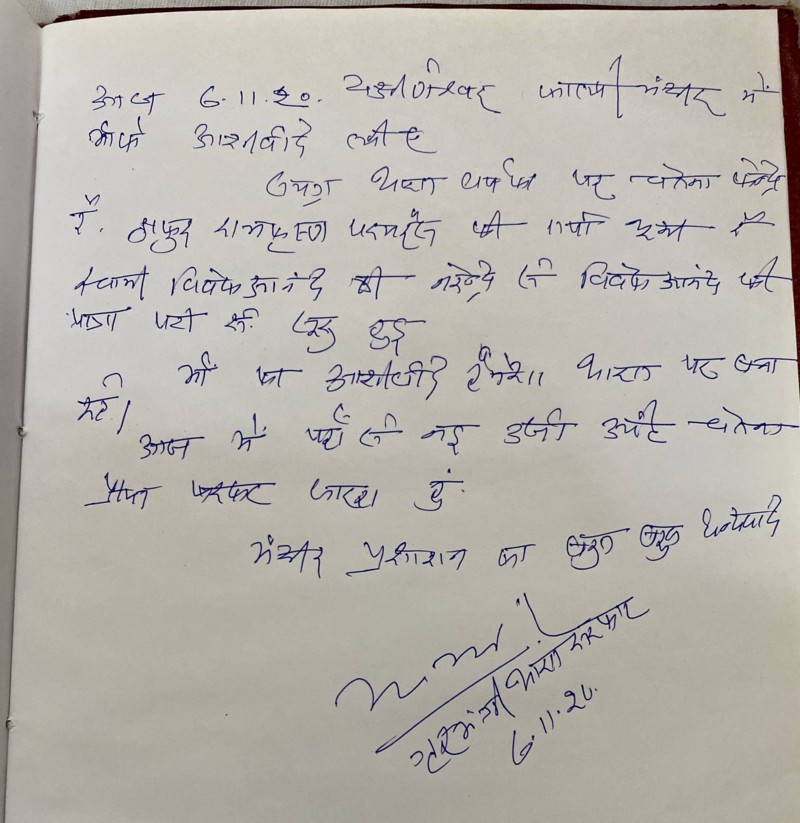 आज 6.11.20. दक्षिणेश्वर काली मंदिर में
माँ का आशीर्वाद
समग्र भारत वर्ष का यह चेतना केन्द्र
है. ठाकुर रामकृष्ण परमहंस की भूमि है
स्वामी विवेकआनंद की नरेन्द्र से विवेकआनंद की
यात्रा यही से शुरु हुई
माँ का आशीर्वाद हमेशा भारत पर बना
रहे।
आज मैं यहाँ से नई उर्जा और चेतना
प्राप्त करकर जारहा हुं.
मंदिर प्रशासन का बहुत बहुत धन्यवाद
गृहमंत्री भारत सरकार
6.11.20.